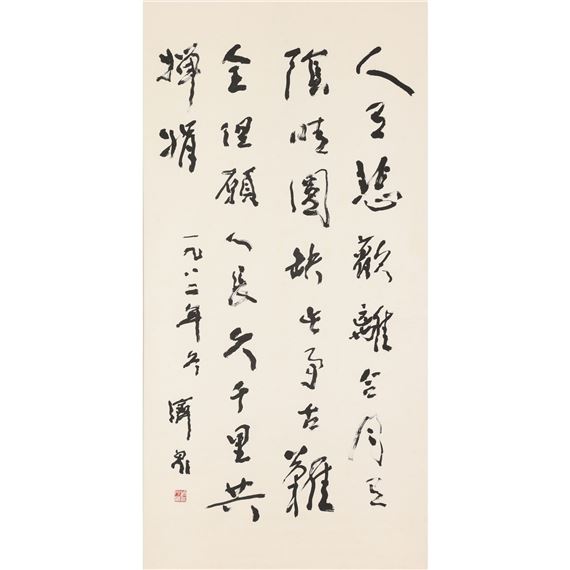 人有悲歡離合月有
陰晴圓缺此事古難
全但願人長久千里共
嬋娟
一九八二年冬 濟眾